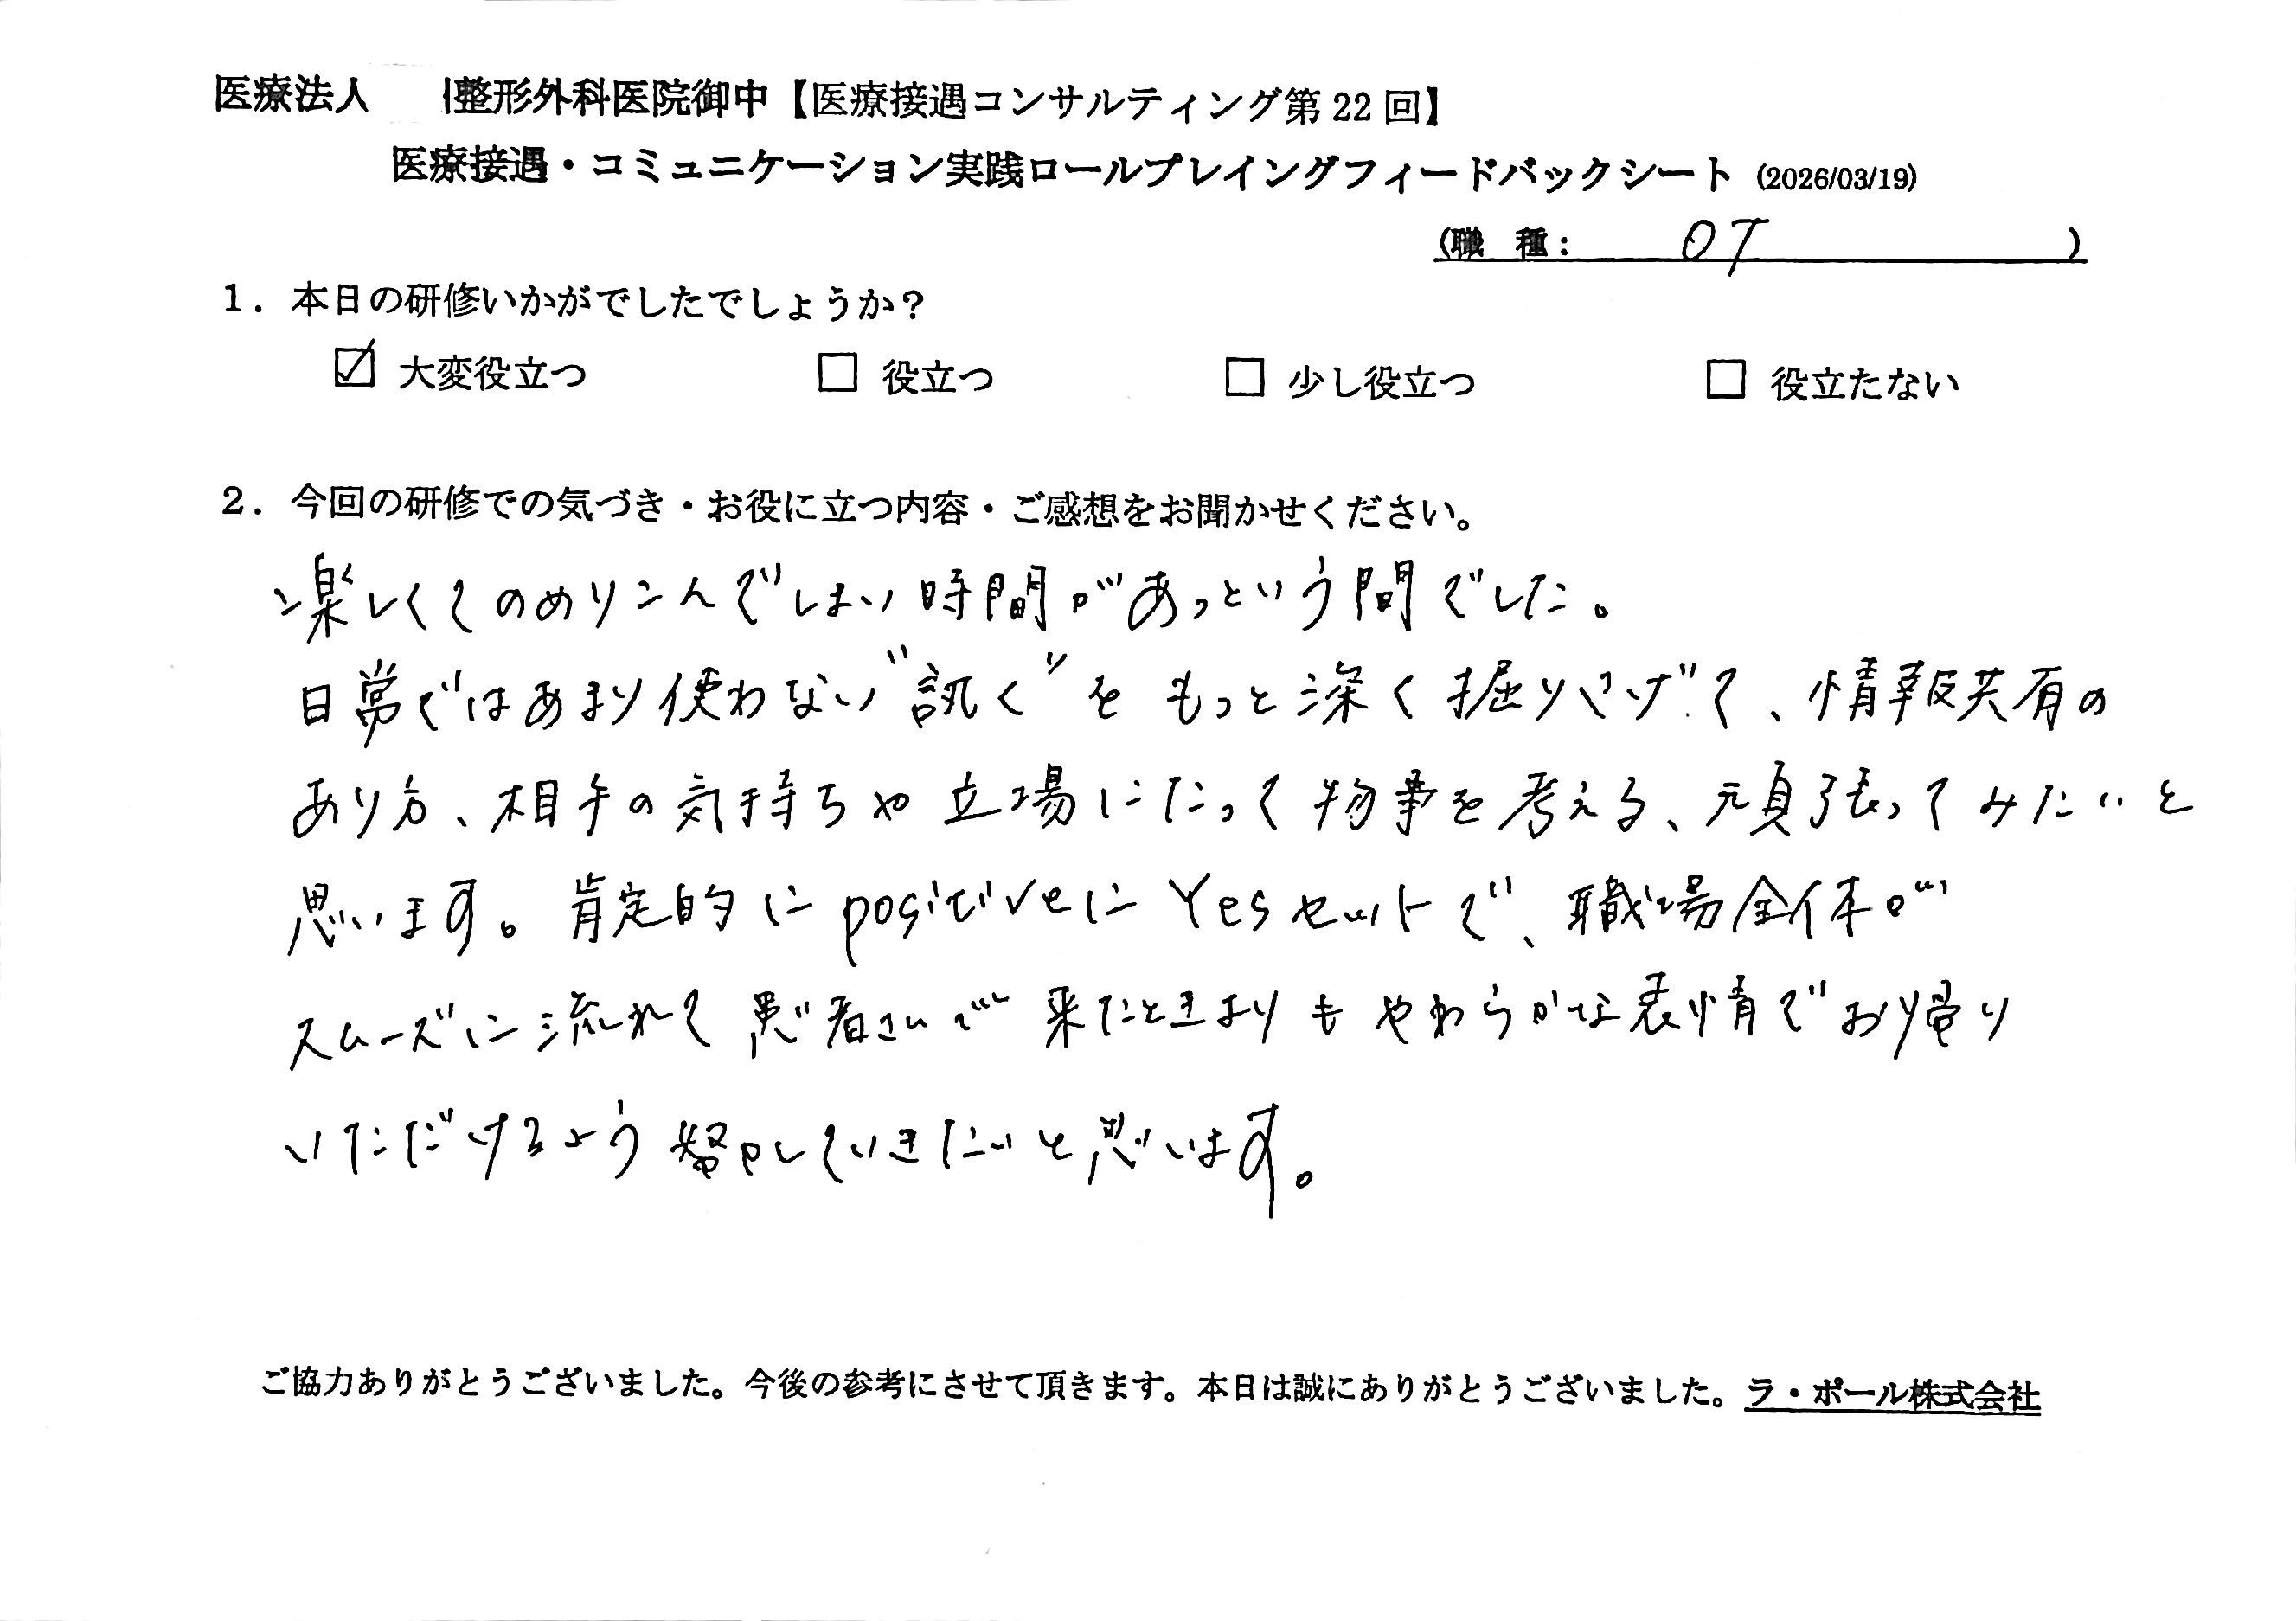 医療法人 整形外科医院御中【医療接遇コンサルティング第22回】
医療接遇・コミュニケーション実践ロールプレイングフィードバックシート (2026/03/19)
(職 種： OT )
1. 本日の研修いかがでしたでしょうか？
☑ 大変役立つ □ 役立つ □ 少し役立つ □ 役立たない
2. 今回の研修での気づき・お役に立つ内容・ご感想をお聞かせください。
楽しくてのめりこんでしまい時間があっという間でした。
日常ではあまり使わない"訊く"をもっと深く掘りさげて、情報共有の
あり方、相手の気持ちや立場にたって物事を考える、頑張ってみたいと
思います。肯定的にpositiveにYesセットで、職場全体が
スムーズに流れて患者さんが来たときよりもやわらかな表情でお帰り
いただけるよう努力していきたいと思います。
ご協力ありがとうございました。今後の参考にさせて頂きます。本日は誠にありがとうございました。ラ・ポール株式会社